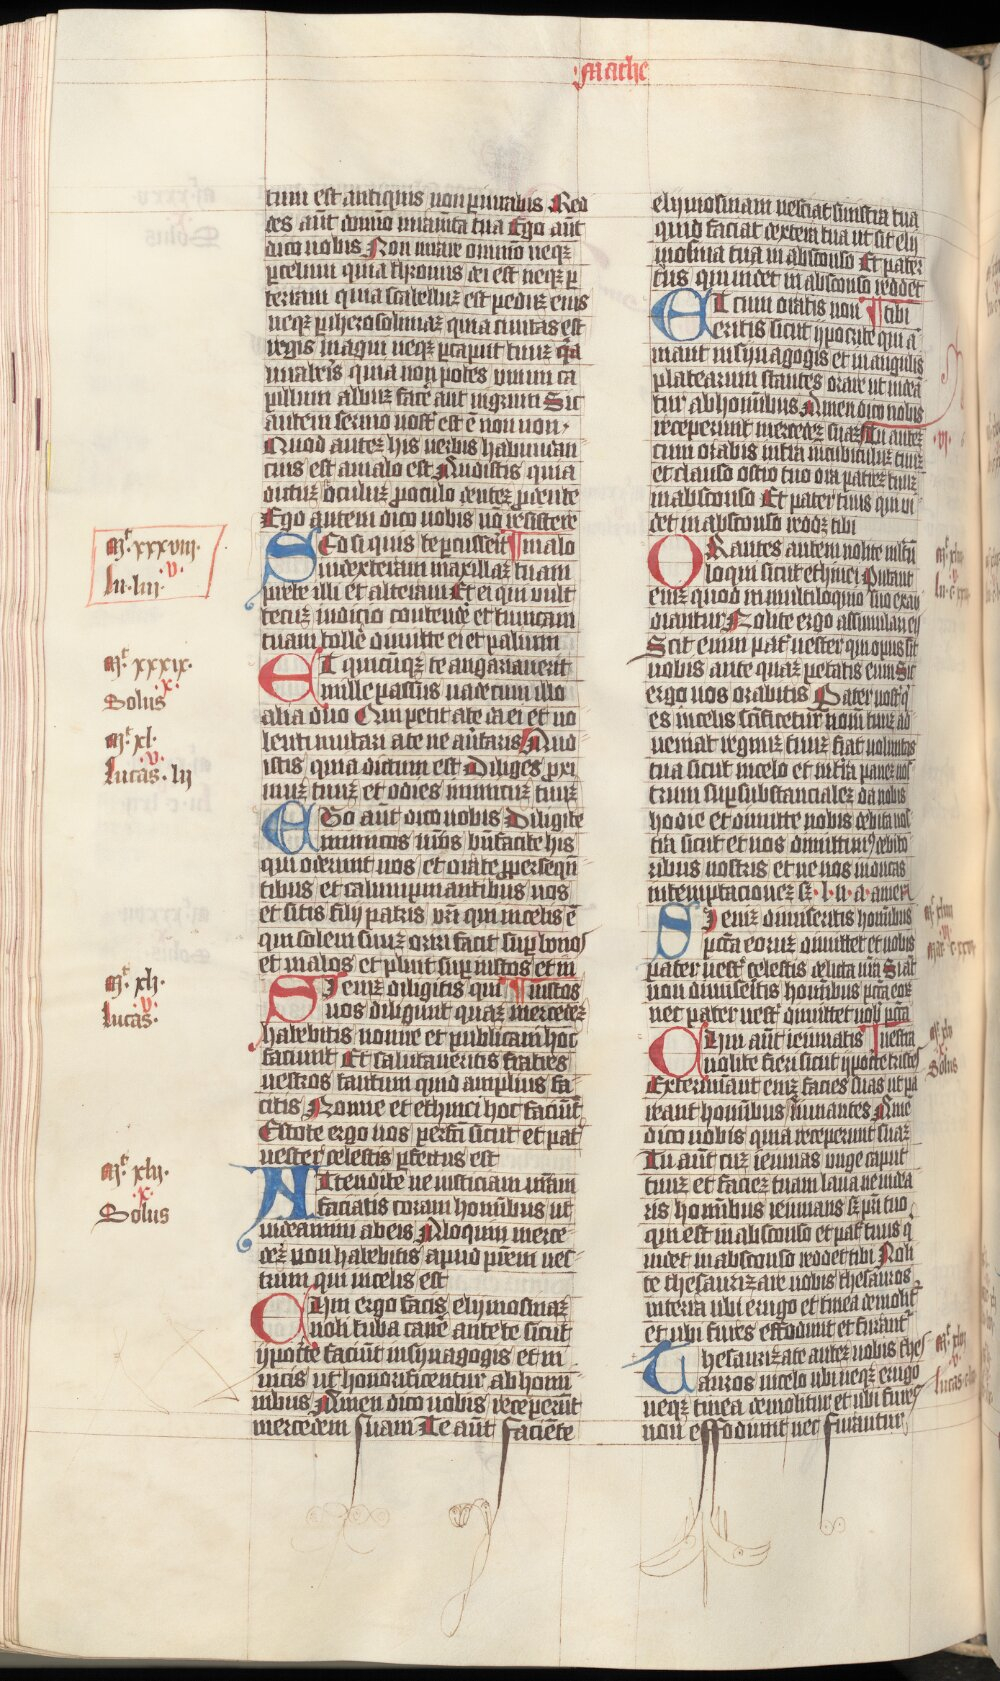 Mathe
tum est antiquis non periurabis Red
des aut domino iuramta tua Ego aut
dico uobis Non iurare omnino neqz
per celum quia thronus dei est neqz p
terram quia scabelluz est peduz eius
neqz p iherosolimaz quia ciuitas est
regis magni neqz p caput tuuz
iuraueris quia non potes unum ca
pillum albuz face aut nigrum Sit
autem sermo uost est e non non
Quod autez his uerbis habundan
cius est a malo est Audistis quia
dictuz oculuz p oculo dentez p dente
Ego autem dico uobis no resistere
Sed si quis te percusserit malo
in dexteram maxillaz tuam
prebe illi et alteram Et ei qui uult
tecuz iudicio contende et tunicam
tuam tolle dimitte ei et palium
Et quicunqz te angariauerit
mille passus uade cum illo
alia duo Qui petit a te da ei et uo
lenti mutuari a te ne autaris Audi
istis quia dictum est Diliges pxi
muz tuuz et odies inimicuz tuuz
Ego aut dico uobis Diligite
inimicos uros bnfacite his
qui oderunt uos et orate p persequen
tibus et calumpniantibus uos
et sitis filij patris uri qui in celis e
qui solem suuz oriri facit sup bonos
et malos et pluit sup iustos et in
Si enz diligitis qui iustos
uos diligunt quaz mercedez
habebitis nonne et publicani hoc
faciunt Et salutaueritis fratres
uestros tantum quid amplius fa
citis Nonne et ethnici hoc faciut
Estote ergo uos perfecti sicut et pat
uester celestis pfectus est
Attendite ne iusticiam uram
faciatis coram hominibus ut
uideamini ab eis Alioquin merce
dez non habebitis apud prem ues
trum qui in celis est
Cum ergo facis elymosinaz
noli tuba cane ante te sicut
ypocte faciut in synagogis et in
uicis ut honorificentur ab homi
nibus Amen dico uobis receperut
mercedem suam Te aut faciete
elymosinam nesciat sinistra tua
quid faciat dextera tua ut sit ely
mosina tua in absconso Et pater
tuus qui uidet in absconso reddet
Et cum oratis non tibi
eritis sicut ypocrite qui a
mant in synagogis et in angulis
platearum stantes orare ut uidea
tur ab hominibus Amen dico uobis
receperunt mercedez suaz Tu autez
cum orabis intra in cubiculuz tuuz
et clauso ostio tuo ora patrez tuuz
in absconso Et pater tuus qui ui
det in absconso reddz tibi
Orantes autem nolite multu
loqui sicut ethnici Putant
enz quod in multiloquio suo exau
diantur Nolite ergo assimulari eis
Scit enim pat uester qui opus sit
uobis ante quaz petatis eum Sic
ergo uos orabitis Pater nost q
es in celis scificetur nom tuuz ad
ueniat regnuz tuuz fiat uoluntas
tua sicut in celo et in tra panez nos
trum supsubstancialez da nobis
hodie et dimitte nobis debita nos
tra sicut et nos dimittim debito
ribus nostris et ne nos inducas
in temptacionez sz l n a amen
Si enz dimiseritis hominibus
pcta eoruz dimittet et uobis
pater uest celestis delicta ura Si aut
non dimiseritis hominibus pcta eoz
nec pater uest dimittet uob pcta
Cum aut ieiunatis uestra
nolite fieri sicut ypocte tristes
Exterminant enz facies suas ut pa
reant hominibus ieiunantes Ame
dico uobis quia receperunt suaz
Tu aut cuz ieiunas unge caput
tuuz et faciez tuam laua ne uidea
ris hominibus ieiunans sz pri tuo
qui est in absconso et pat tuus q
uidet in absconso reddet tibi Noli
te thesaurizare uobis thesauros
in terra ubi erugo et tinea demolit
et ubi fures effodiunt et furant
Thesaurizate autez uobis thes
auros in celo ubi neqz erugo
neqz tinea demolitur et ubi fures
non effodiunt nec furantur
Mt xxxviij
v
lu liij
Mt xxxix
x
Solus
Mt xl
v
lucas lij
Mt xli
v
lucas
Mt xlij
x
Solus
vi
Solus